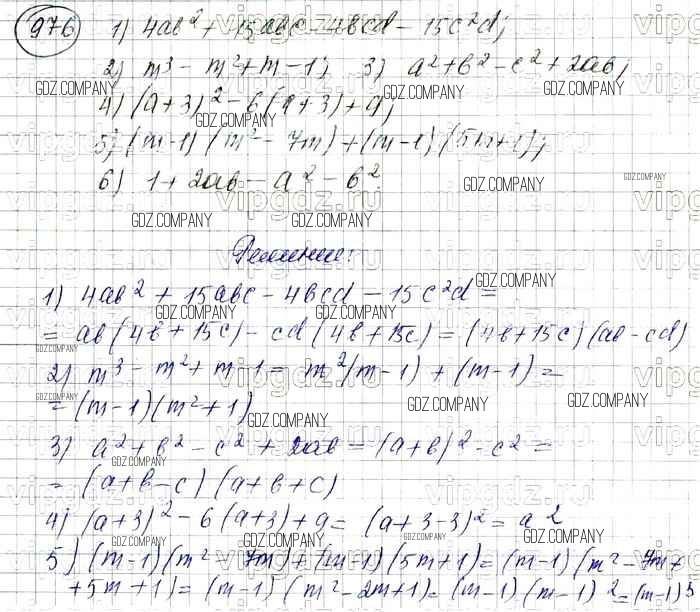 976 1) 4ab² + 15abc - 4bcd - 15c²d;
2) m³ - m² + m - 1; 3) a² + b² - c² + 2ab;
4) (a+3)² - 6(a+3) + 9;
5) (m-1)(m² - 7m) + (m-1)(5m+1);
6) 1 + 2ab - a² - b²
Решение:
1) 4ab² + 15abc - 4bcd - 15c²d =
= ab(4b + 15c) - cd(4b + 15c) = (4b + 15c)(ab - cd)
2) m³ - m² + m - 1 = m²(m-1) + (m-1) =
= (m-1)(m² + 1)
3) a² + b² - c² + 2ab = (a+b)² - c² =
= (a+b-c)(a+b+c)
4) (a+3)² - 6(a+3) + 9 = (a+3-3)² = a²
5) (m-1)(m² - 7m) + (m-1)(5m+1) = (m-1)(m² - 7m +
+ 5m + 1) = (m-1)(m² - 2m + 1) = (m-1)(m-1)² = (m-1)³
GDZ.COMPANY
vipgdz.ru